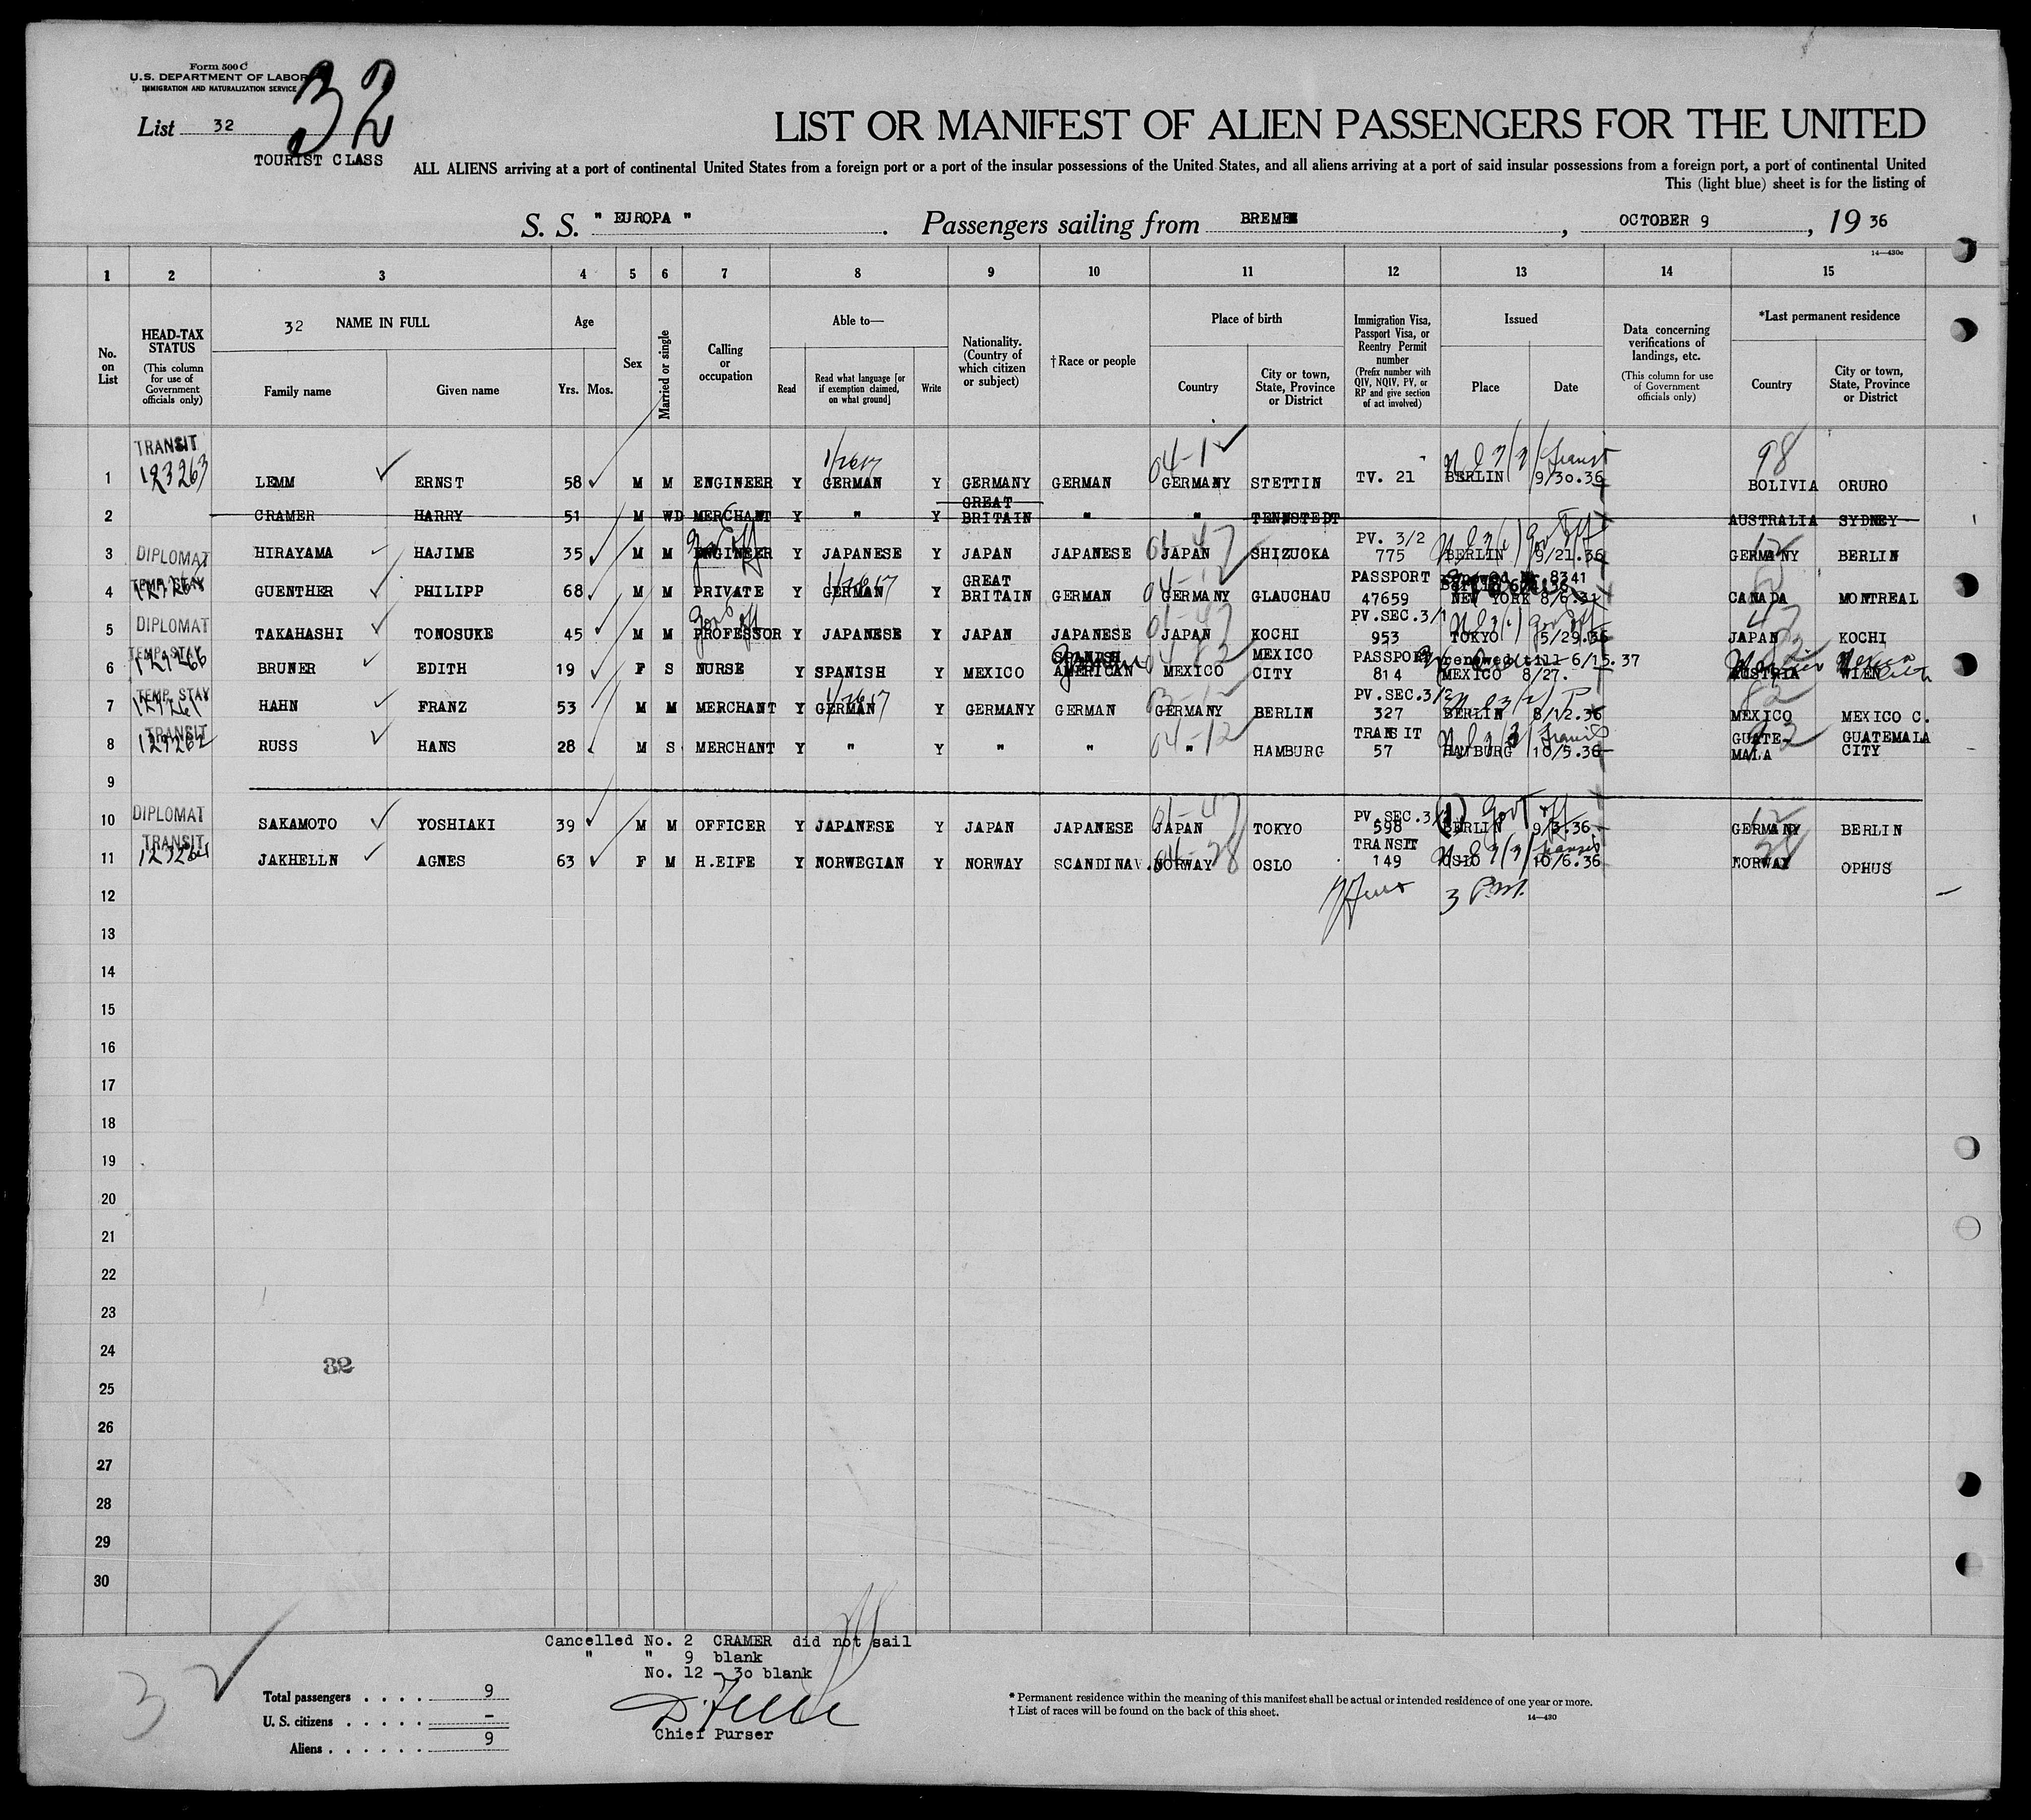 Form 500 C
U.S. DEPARTMENT OF LABOR
IMMIGRATION AND NATURALIZATION SERVICE
32
List 32
TOURIST CLASS
LIST OR MANIFEST OF ALIEN PASSENGERS FOR THE UNITED
ALL ALIENS arriving at a port of continental United States from a foreign port or a port of the insular possessions of the United States, and all aliens arriving at a port of said insular possessions from a foreign port, a port of continental United
This (light blue) sheet is for the listing of
S. S. " EUROPA " . Passengers sailing from BREMEN , OCTOBER 9 , 19 36
14—430c
1 2 3 4 5 6 7 8 9 10 11 12 13 14 15
No. on List
HEAD-TAX STATUS (This column for use of Government officials only)
32 NAME IN FULL
Family name Given name
Age
Yrs. Mos.
Sex
Married or single
Calling or occupation
Able to—
Read Read what language [or if exemption claimed, on what ground] Write
Nationality. (Country of which citizen or subject)
† Race or people
Place of birth
Country City or town, State, Province or District
Immigration Visa, Passport Visa, or Reentry Permit number (Prefix number with QIV, NQIV, PV, or RP and give section of act involved)
Issued
Place Date
Data concerning verifications of landings, etc. (This column for use of Government officials only)
*Last permanent residence
Country City or town, State, Province or District
TRANSIT 123263
1 LEMM ERNST 58 M M ENGINEER Y GERMAN Y GERMANY GERMAN 04-1 GERMANY STETTIN TV. 21 BERLIN 9/30.36 98 BOLIVIA ORURO
2 CRAMER HARRY 51 M WD MERCHANT Y " Y GREAT BRITAIN " " TENNSTEDT AUSTRALIA SYDNEY
DIPLOMAT
3 HIRAYAMA HAJIME 35 M M ENGINEER Gov Off Y JAPANESE Y JAPAN JAPANESE JAPAN SHIZUOKA PV. 3/2 775 BERLIN 9/21.36 12 GERMANY BERLIN
TEMP. STAY
4 GUENTHER PHILIPP 68 M M PRIVATE Y GERMAN Y GREAT BRITAIN GERMAN GERMANY GLAUCHAU PASSPORT 47659 8341 NEW YORK 8/6.31 CANADA MONTREAL
DIPLOMAT
5 TAKAHASHI TONOSUKE 45 M M PROFESSOR Gov Off Y JAPANESE Y JAPAN JAPANESE JAPAN KOCHI PV.SEC.3/1 953 TOKYO 5/29.36 47 JAPAN KOCHI
TEMP. STAY 127266
6 BRUNER EDITH 19 F S NURSE Y SPANISH Y MEXICO SPANISH AMERICAN German MEXICO MEXICO CITY PASSPORT 814 renewed till 6/15.37 MEXICO 8/27. AUSTRIA WIEN Mexico
TEMP. STAY
7 HAHN FRANZ 53 M M MERCHANT Y GERMAN Y GERMANY GERMAN GERMANY BERLIN PV.SEC.3/2 327 BERLIN 8/12.36 82 MEXICO MEXICO C.
TRANSIT 127262
8 RUSS HANS 28 M S MERCHANT Y " Y " " 04-12 " HAMBURG TRANSIT 57 HAMBURG 10/5.36 GUATE-MALA GUATEMALA CITY
9
DIPLOMAT
10 SAKAMOTO YOSHIAKI 39 M M OFFICER Y JAPANESE Y JAPAN JAPANESE JAPAN TOKYO PV.SEC.3/(1) 598 Gov't Off BERLIN 9/3.36 12 GERMANY BERLIN
TRANSIT 123264
11 JAKHELLN AGNES 63 F M H.EIFE Y NORWEGIAN Y NORWAY SCANDINAV. NORWAY OSLO TRANSIT 149 OSLO 10/6.36 28 NORWAY OPHUS
12 3 P.M.
13
14
15
16
17
18
19
20
21
22
23
24
32
25
26
27
28
29
30
Cancelled No. 2 CRAMER did not sail
" " 9 blank
No. 12 - 30 blank
Chief Purser
Total passengers . . . . 9
U. S. citizens . . . . . -
Aliens . . . . . . 9
* Permanent residence within the meaning of this manifest shall be actual or intended residence of one year or more.
† List of races will be found on the back of this sheet.
14—430